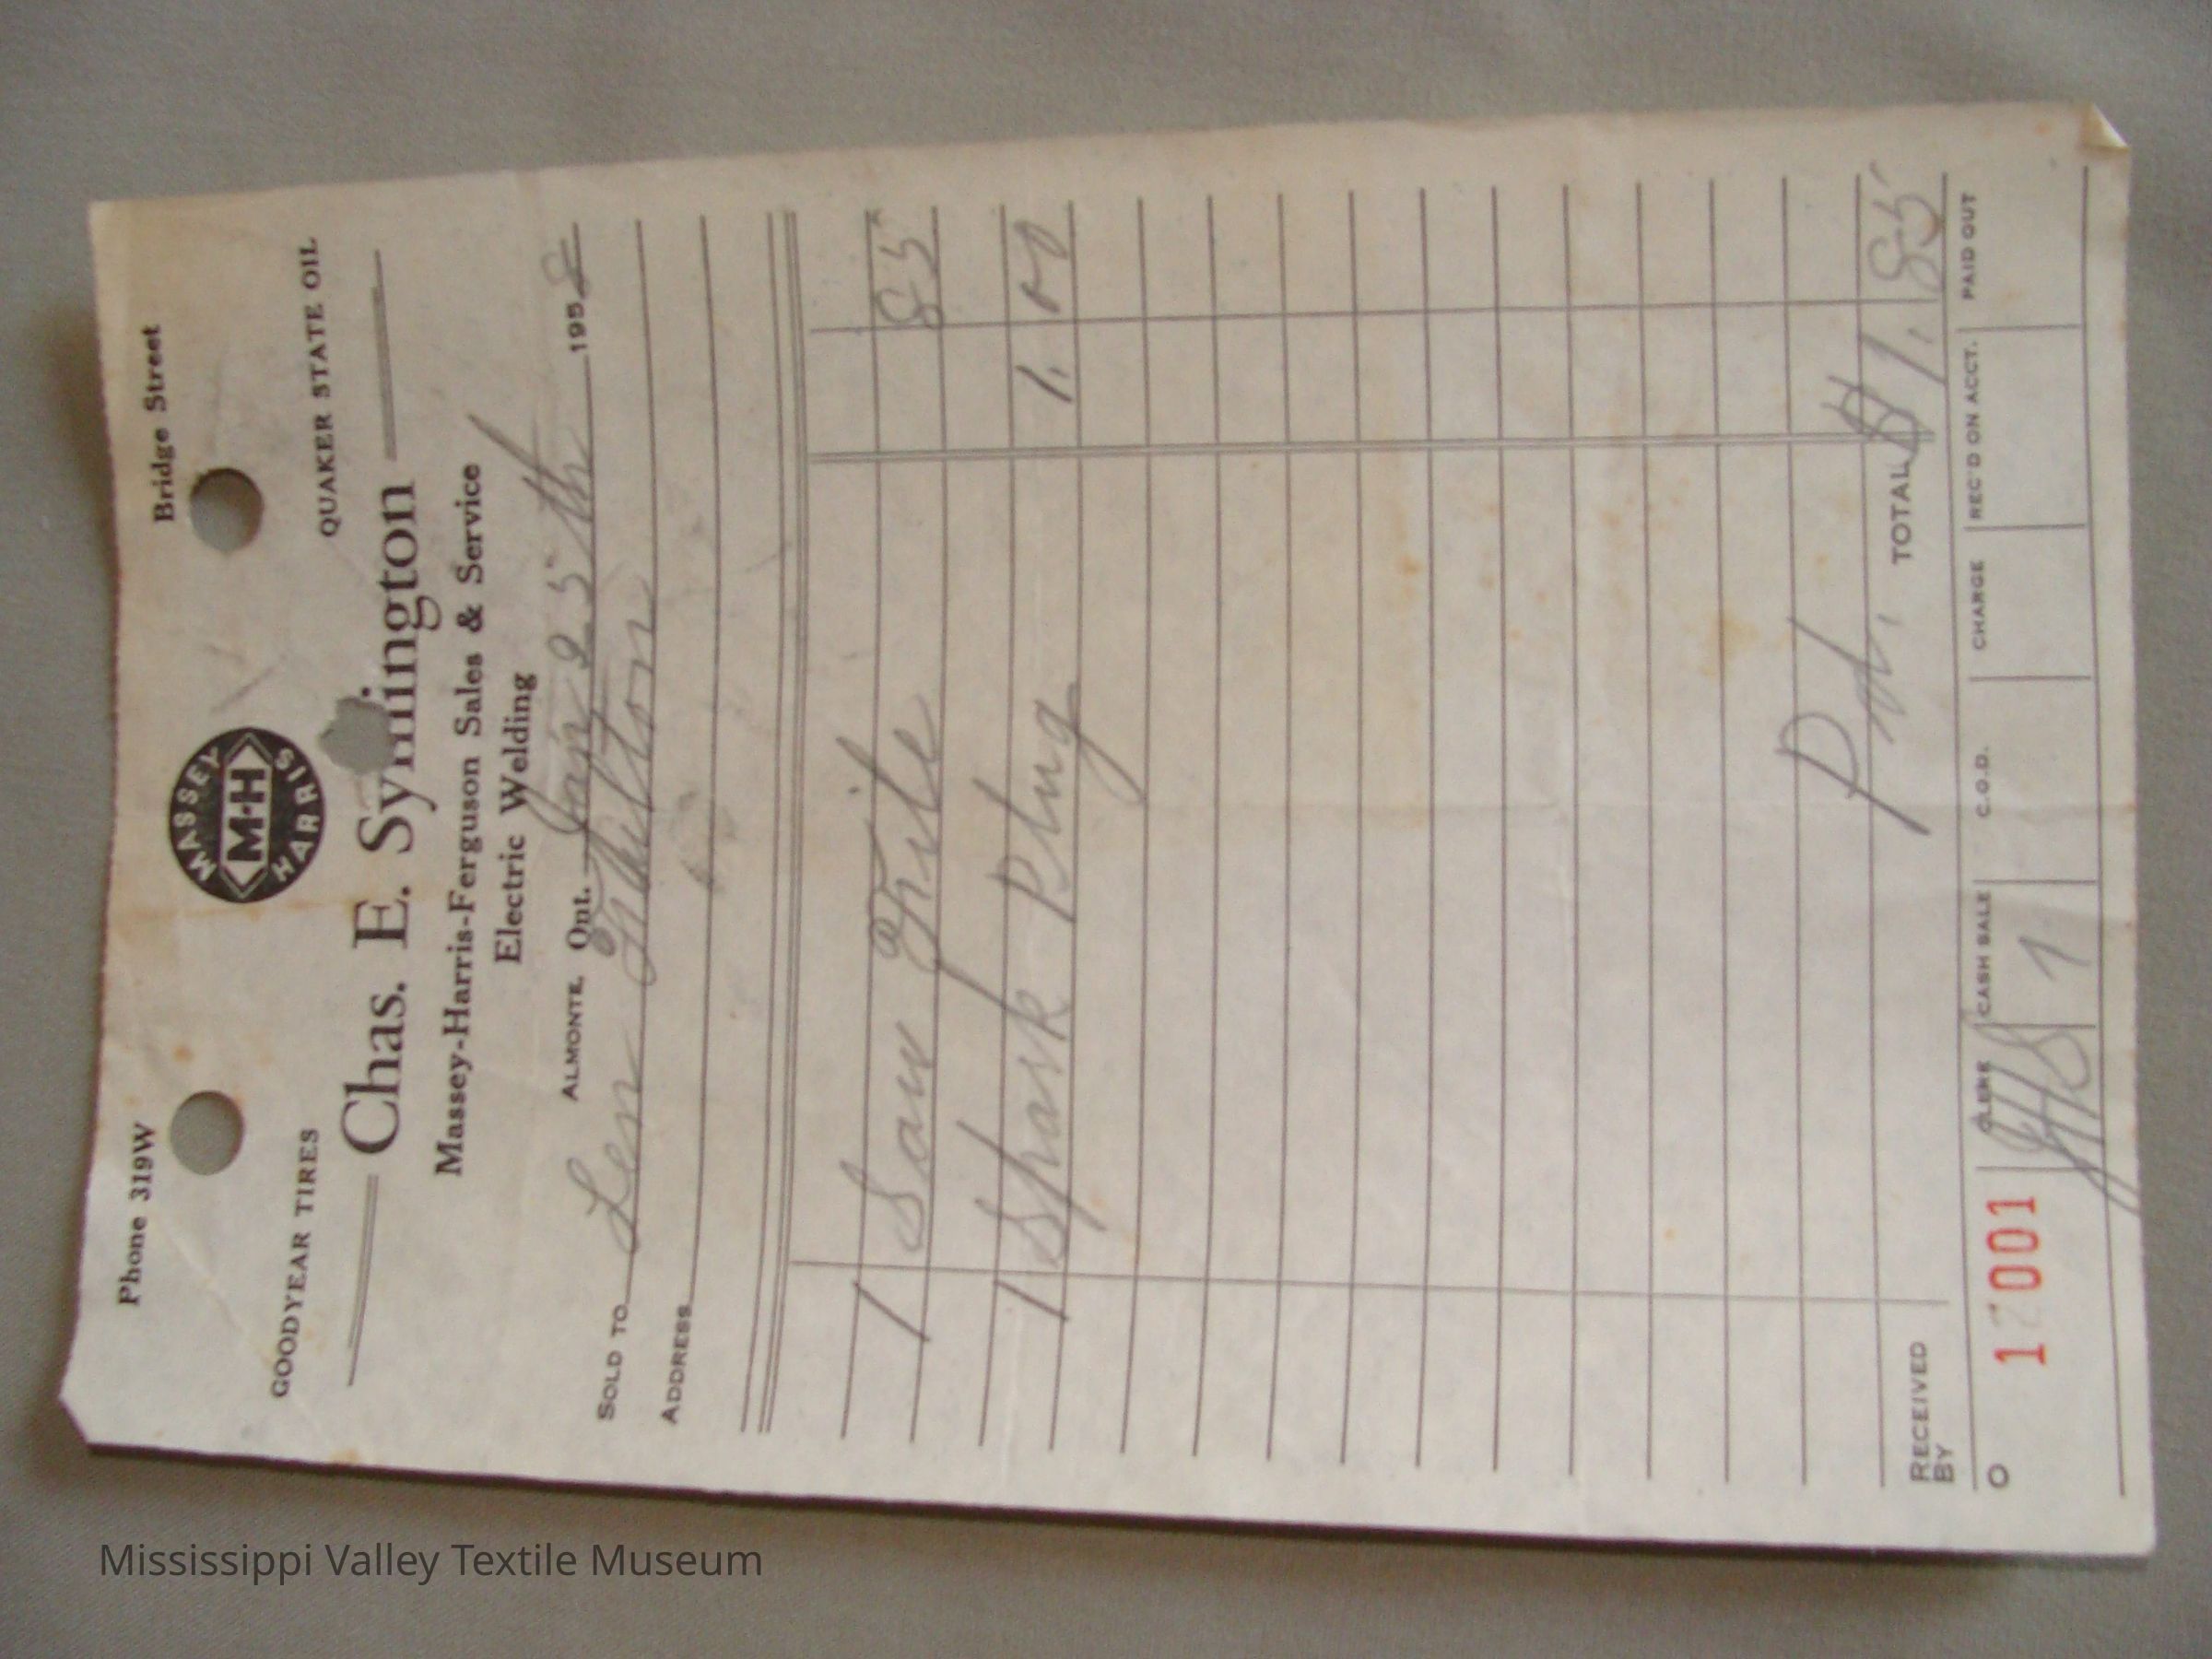 Phone 319W Bridge Street
MASSEY
M-H
HARRIS
GOODYEAR TIRES QUAKER STATE OIL
Chas. E. Symington
Massey-Harris-Ferguson Sales & Service
Electric Welding
ALMONTE, Ont. Jan 25th 1958
SOLD TO Len Fulton
ADDRESS
1 Saw File 85
1 Spark Plug 1.00
Pd.
RECEIVED BY TOTAL $1.85
O CLERK CASH SALE C.O.D. CHARGE REC'D ON ACCT. PAID OUT
12001 1
Mississippi Valley Textile Museum